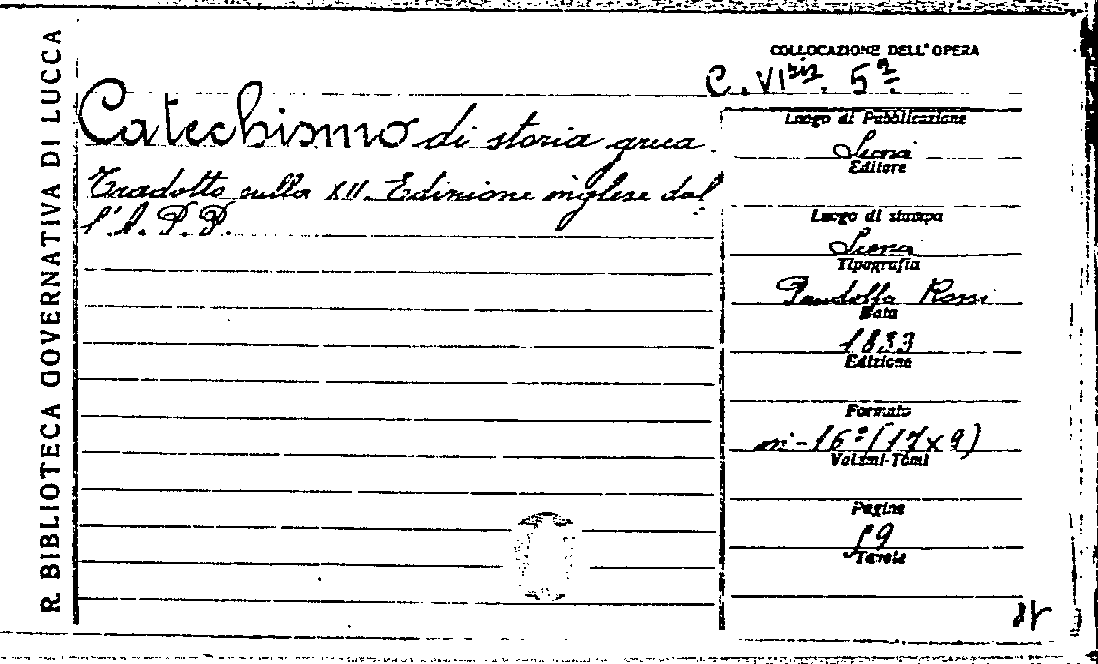 R. BIBLIOTECA GOVERNATIVA DI LUCCA
COLLOCAZIONE DELL'OPERA
C. VI bis. 5ª
Catechismo di storia greca.
Tradotto sulla XII. Edizione inglese dal
l'A. P. P.
Luogo di Pubblicazione
Siena
Editore
Luogo di stampa
Siena
Tipografia
Pandolfo Rossi
Data
1833
Edizione
Formato
in-16º (17 x 9)
Volumi-Tomi
Pagine
Tavole